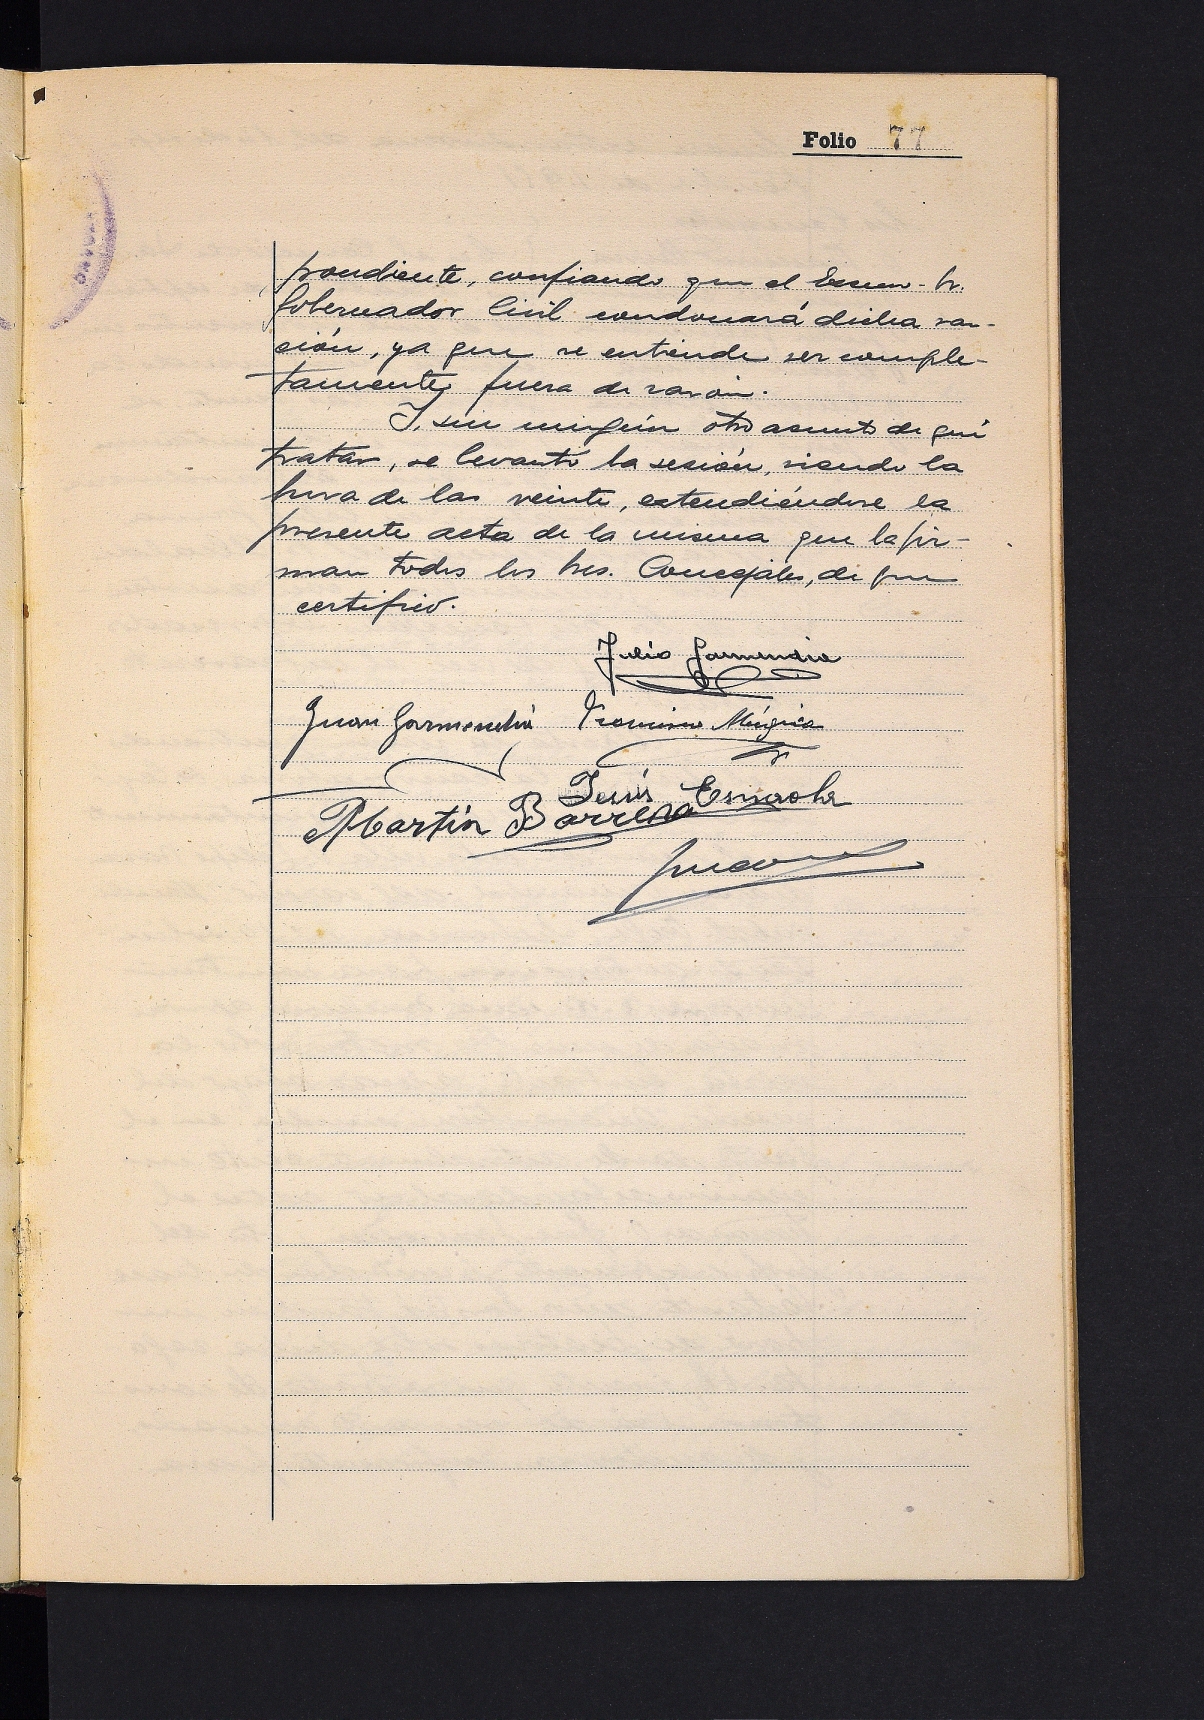 Folio 77
pondiente, confiando que el Excmo. Sr.
Gobernador Civil condonará dicha san-
ción, ya que se entiende ser comple-
tamente fuera de razón.
Y, sin ningún otro asunto de que
tratar, se levantó la sesión, siendo la
hora de las veinte, extendiéndose la
presente acta de la misma que la fir-
man todos los Sres. Concejales, de que
certifico.
Julio Garmendia
Juan Garmendia Francisco Múgica
Jesús
Martín Barrena